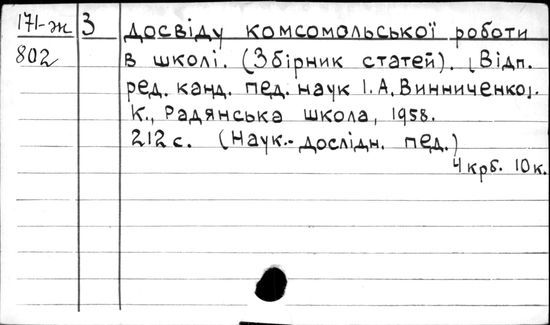 171-ж 3 досвіду комсомольської роботи
802 в школі. (Збірник статей). [Відп.
ред. канд. пед. наук І.А. Винниченко].
К., Радянська школа, 1958.
212 с. (Наук.-дослідн. пед.)
4 крб. 10 к.